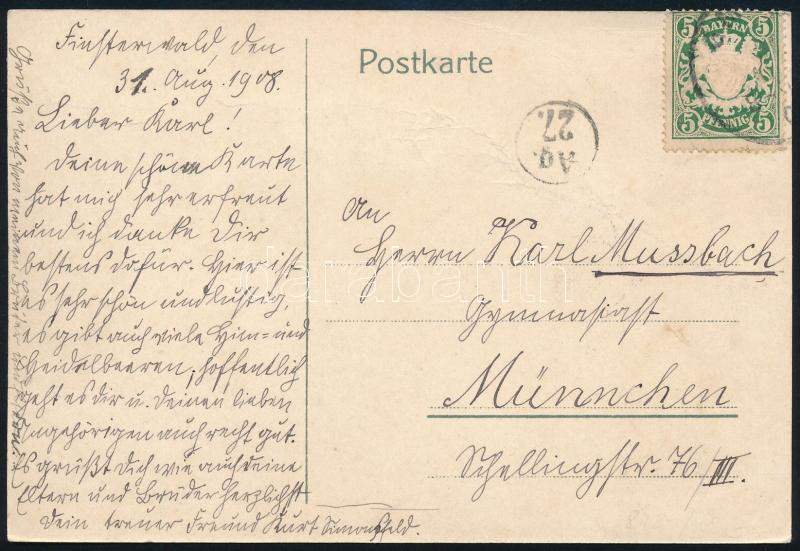 Finsterwald, den
31. Aug. 1908.
Lieber Karl!
Deine schöne Karte
hat mich sehr erfreut
und ich danke Dir
bestens dafür. Hier ist
es sehr schön und lustig,
es gibt auch viele Him- und
Heidelbeeren; hoffentlich
geht es dir u. Deinen lieben
Angehörigen auch recht gut.
Es grüßt Dich wie auch deine
Eltern und Brüder herzlichst
Dein treuer Freund Kurt Simonsfeld.
Postkarte
BAYERN
5 5
5 5
PFENNIG
27.
Ag.
An
Herrn Karl Mussbach
Gymnasiast
Münnchen
Schellingstr. 76/III.
darabanth